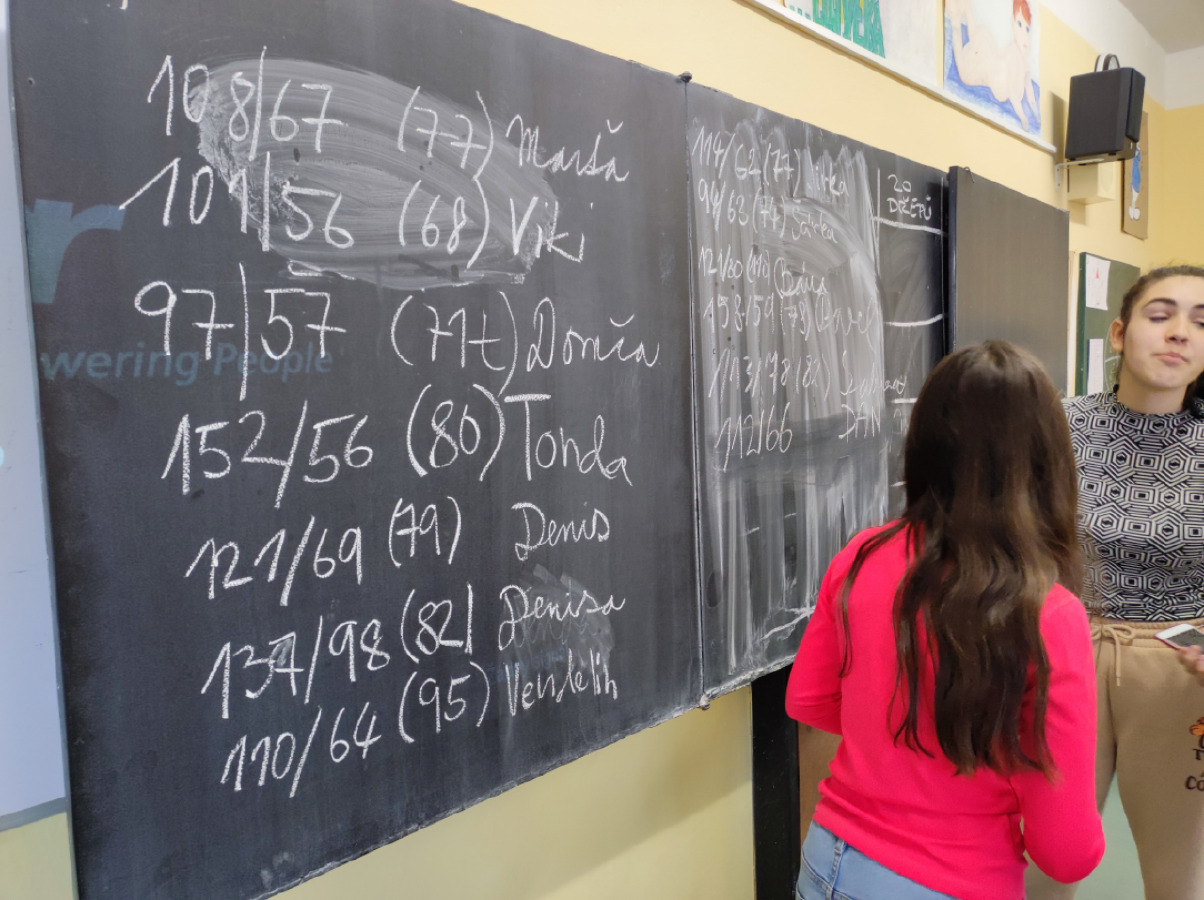 108/67 (77) Maruš
101/56 (68) Viki
97/57 (71) Domča
152/56 (80) Tonda
121/69 (79) Denis
137/98 (82) Denisa
110/64 (95) Vendelín
wering People
114/62 (77) Mirka
94/63 (74) Šárka
121/60 (110)
158/59 (78)
113/78
112/66 DAN
20
DŘEPŮ